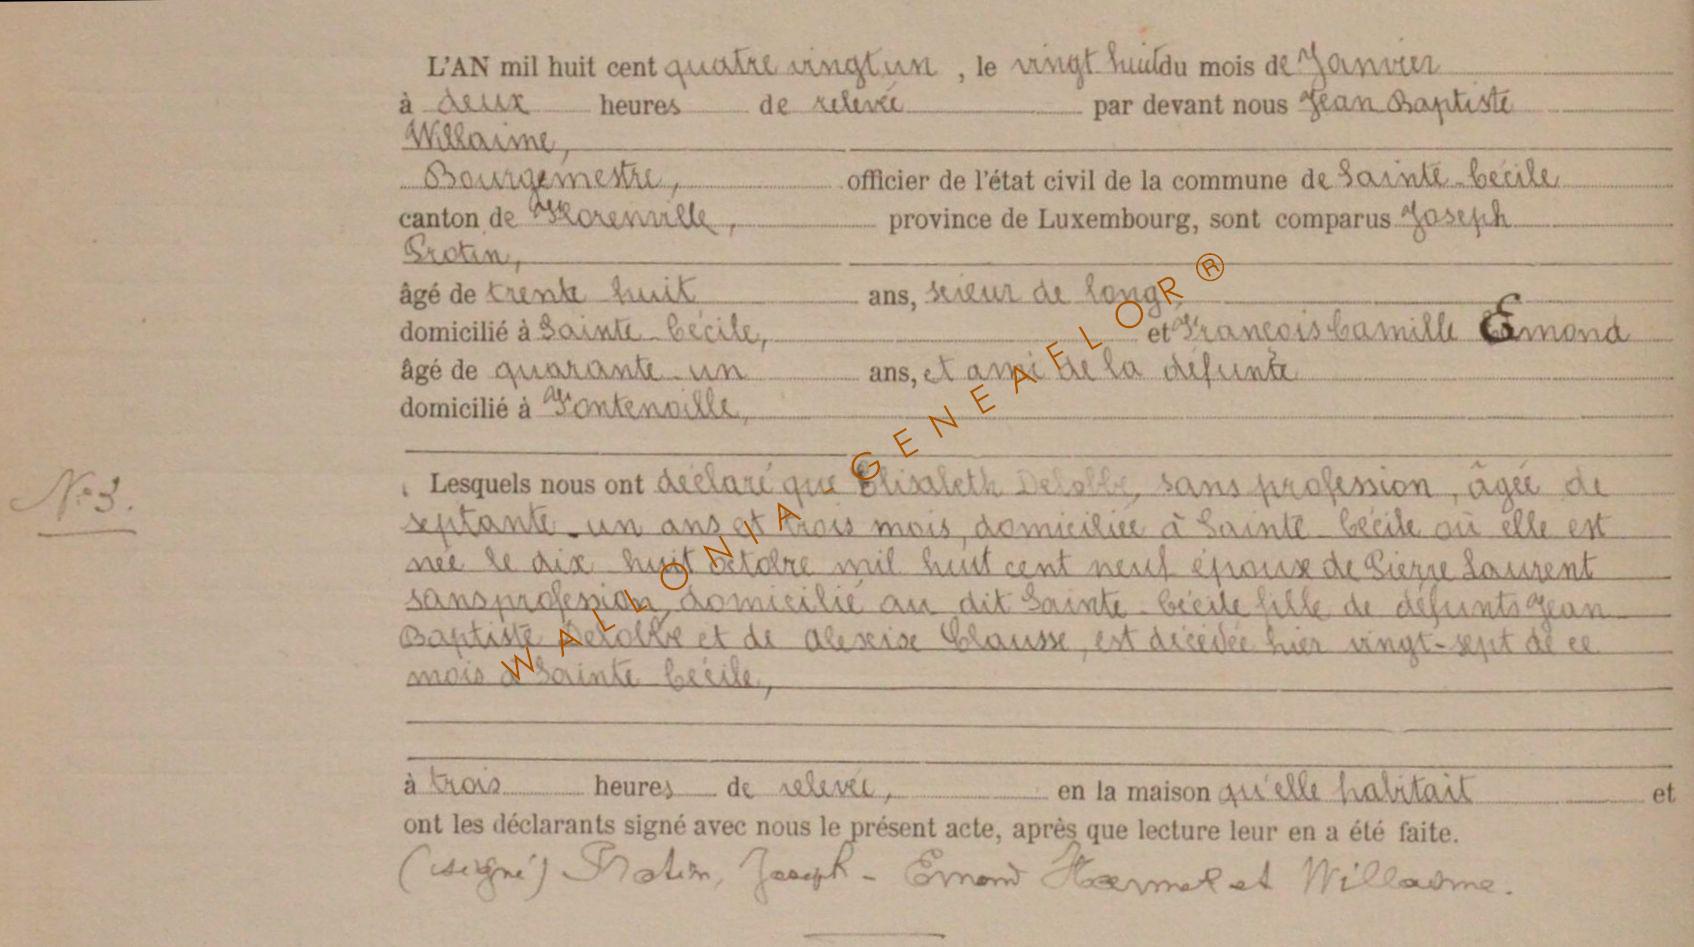 L'AN mil huit cent quatre vingt un , le vingt huit du mois de Janvier
à deux heures de relevée par devant nous Jean Baptiste
Willaime,
Bourgemestre, officier de l'état civil de la commune de Sainte-Cécile
canton de Florenville, province de Luxembourg, sont comparus Joseph
Protin,
âgé de trente huit ans, scieur de long,
domicilié à Sainte-Cécile, et François Camille Emond
âgé de quarante-un ans, et ami de la défunte
domicilié à Fontenoille,
N° 3.
Lesquels nous ont déclaré que Elisabeth Delobbe, sans profession, âgée de
septante-un ans et trois mois, domiciliée à Sainte-Cécile où elle est
née le dix huit octobre mil huit cent neuf épouse de Pierre Laurent
sans profession, domicilié au dit Sainte-Cécile fille de défunts Jean
Baptiste Delobbe et de Alexise Clausse, est décédée hier vingt-sept de ce
mois à Sainte Cécile,
à trois heures de relevée, en la maison qu'elle habitait et
ont les déclarants signé avec nous le présent acte, après que lecture leur en a été faite.
(signé) Protin, Joseph - Emond et Willaime.
WALLONIA GENEAFLOR®